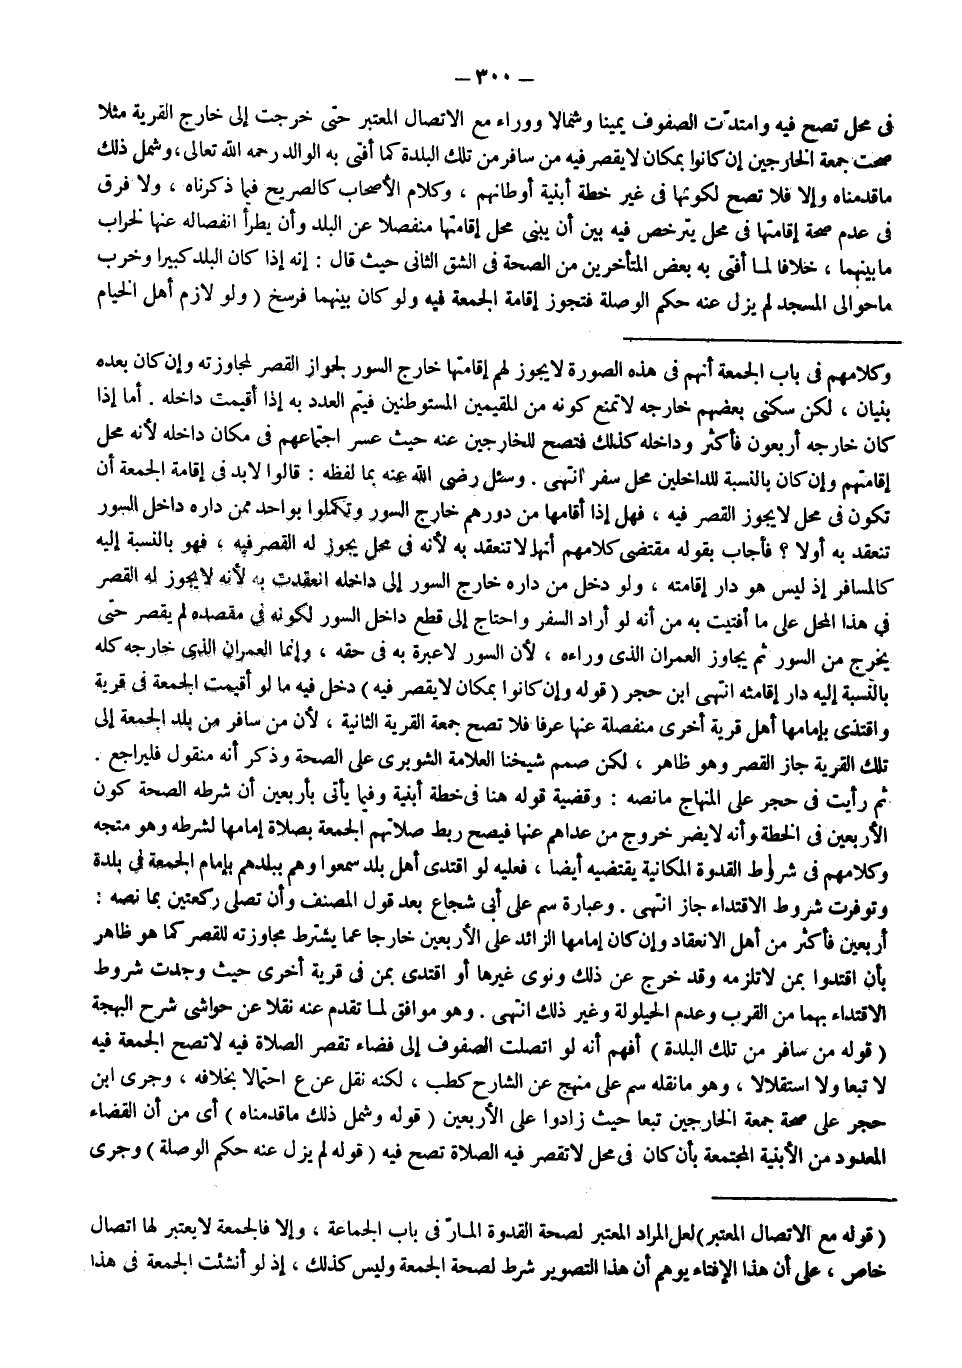 – ٣٠٠ –
فى محل تصح فيه وامتدّت الصفوف يمينا وشمالا ووراء مع الاتصال المعتبر حتى خرجت إلى خارج القرية مثلا
صحت جمعة الخارجين إن كانوا بمكان لايقصر فيه من سافر من تلك البلدة كما أفتى به الوالد رحمه الله تعالى، وشمل ذلك
ماقدمناه وإلا فلا تصح لكونها فى غير خطة أبنية أوطانهم ، وكلام الأصحاب كالصريح فيما ذكرناه ، ولا فرق
فى عدم صحة إقامتها فى محل يترخص فيه بين أن يبنى محل إقامتها منفصلا عن البلد وأن يطرأ انفصاله عنها لخراب
مابينهما ، خلافا لما أفتى به بعض المتأخرين من الصحة فى الشق الثانى حيث قال : إنه إذا كان البلد كبيرا وخرب
ماحوالى المسجد لم يزل عنه حكم الوصلة فتجوز إقامة الجمعة فيه ولو كان بينهما فرسخ ( ولو لازم أهل الخيام
وكلامهم فى باب الجمعة أنهم فى هذه الصورة لايجوز لهم إقامتها خارج السور لجواز القصر لمجاوزته وإن كان بعده
بنيان ، لكن سكنى بعضهم خارجه لاتمنع كونه من المقيمين المستوطنين فيتم العدد به إذا أقيمت داخله . أما إذا
كان خارجه أربعون فأكثر وداخله كذلك فتصح للخارجين عنه حيث عسر اجتماعهم فى مكان داخله لأنه محل
إقامتهم وإن كان بالنسبة للداخلين محل سفر انتهى . وسئل رضى الله عنه بما لفظه : قالوا لابد فى إقامة الجمعة أن
تكون فى محل لايجوز القصر فيه ، فهل إذا أقامها من دورهم خارج السور وتكملوا بواحد ممن داره داخل السور
تنعقد به أولا ؟ فأجاب بقوله مقتضى كلامهم أنها لاتنعقد به لأنه فى محل يجوز له القصر فيه ، فهو بالنسبة إليه
كالمسافر إذ ليس هو دار إقامته ، ولو دخل من داره خارج السور إلى داخله انعقدت به لأنه لايجوز له القصر
فى هذا المحل على ما أفتيت به من أنه لو أراد السفر واحتاج إلى قطع داخل السور لكونه فى مقصده لم يقصر حتى
يخرج من السور ثم يجاوز العمران الذى وراءه ، لأن السور لاعبرة به فى حقه ، وإنما العمران الذى خارجه كله
بالنسبة إليه دار إقامته انتهى ابن حجر ( قوله وإن كانوا بمكان لايقصر فيه ) دخل فيه ما لو أقيمت الجمعة فى قرية
واقتدى بإمامها أهل قرية أخرى منفصلة عنها عرفا فلا تصح جمعة القرية الثانية ، لأن من سافر من بلد الجمعة إلى
تلك القرية جاز القصر وهو ظاهر ، لكن صمم شيخنا العلامة الشوبرى على الصحة وذكر أنه منقول فليراجع .
ثم رأيت فى حجر على المنهاج مانصه : وقضية قوله هنا فى خطة أبنية وفيما يأتى بأربعين أن شرطه الصحة كون
الأربعين فى الخطة وأنه لايضر خروج من عداهم عنها فيصح ربط صلاتهم الجمعة بصلاة إمامها لشرطه وهو متجه
وكلامهم فى شروط القدوة المكانية يقتضيه أيضا ، فعليه لو اقتدى أهل بلد سمعوا وهم ببلدهم بإمام الجمعة فى بلدة
وتوفرت شروط الاقتداء جاز انتهى . وعبارة سم على أبى شجاع بعد قول المصنف وأن تصلى ركعتين بما نصه :
أربعين فأكثر من أهل الانعقاد وإن كان إمامها الزائد على الأربعين خارجا عما يشترط مجاوزته للقصر كما هو ظاهر
بأن اقتدوا بمن لاتلزمه وقد خرج عن ذلك ونوى غيرها أو اقتدى بمن فى قرية أخرى حيث وجدت شروط
الاقتداء بهما من القرب وعدم الحيلولة وغير ذلك انتهى . وهو موافق لما تقدم عنه نقلا عن حواشى شرح البهجة
( قوله من سافر من تلك البلدة ) أفهم أنه لو اتصلت الصفوف إلى فضاء تقصر الصلاة فيه لاتصح الجمعة فيه
لا تبعا ولا استقلالا ، وهو مانقله سم على منهج عن الشارح كطب ، لكنه نقل عن ع احتمالا بخلافه ، وجرى ابن
حجر على صحة جمعة الخارجين تبعا حيث زادوا على الأربعين ( قوله وشمل ذلك ماقدمناه ) أى من أن الفضاء
المعدود من الأبنية المجتمعة بأن كان فى محل لاتقصر فيه الصلاة تصح فيه ( قوله لم يزل عنه حكم الوصلة ) وجرى
( قوله مع الاتصال المعتبر) لعل المراد المعتبر لصحة القدوة المارّ فى باب الجماعة ، وإلا فالجمعة لايعتبر لها اتصال
خاص ، على أن هذا الإفتاء يوهم أن هذا التصوير شرط لصحة الجمعة وليس كذلك ، إذ لو أنشئت الجمعة فى هذا